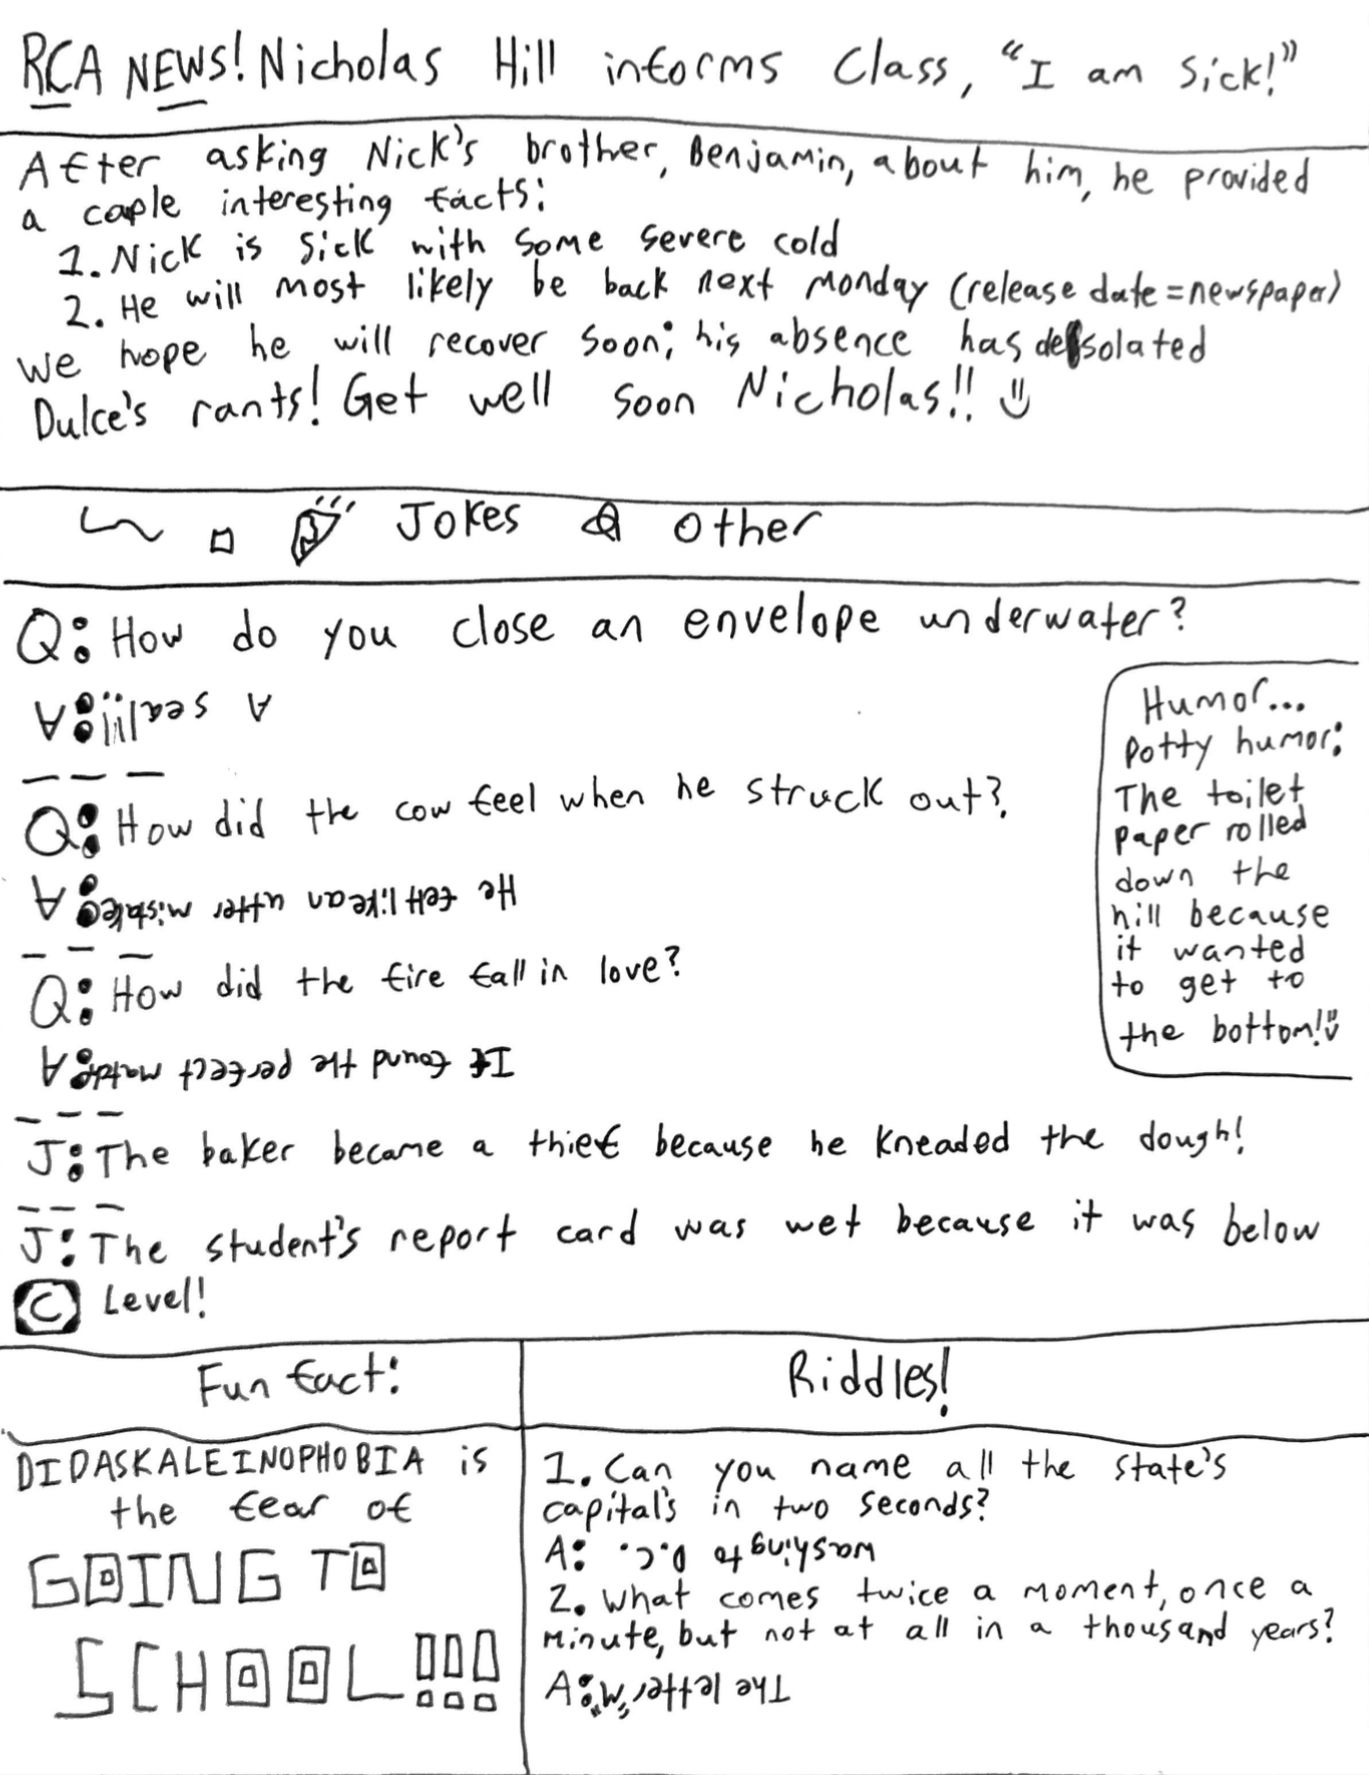 RCA NEWS! Nicholas Hill informs Class, "I am sick!"
After asking Nick's brother, Benjamin, about him, he provided
a cople interesting facts:
1. Nick is sick with some severe cold
2. He will most likely be back next Monday (release date=newspaper)
we hope he will recover soon; his absence has desolated
Dulce's rants! Get well soon Nicholas!!
Jokes & Other
Q: How do you close an envelope underwater?
A: A seal!!!
Q: How did the cow feel when he struck out?
A: He felt like an utter mistake
Q: How did the fire fall in love?
A: It found the perfect match
J: The baker became a thief because he kneaded the dough!
J: The student's report card was wet because it was below
C Level!
Humor...
Potty humor:
The toilet
paper rolled
down the
hill because
it wanted
to get to
the bottom!
Fun fact:
DIDASKALEINOPHOBIA is
the fear of
GOING TO
SCHOOL!!!
Riddles!
1. Can you name all the state's
capital's in two seconds?
A: washing to D.C.
2. What comes twice a moment, once a
minute, but not at all in a thousand years?
A: The letter "M"